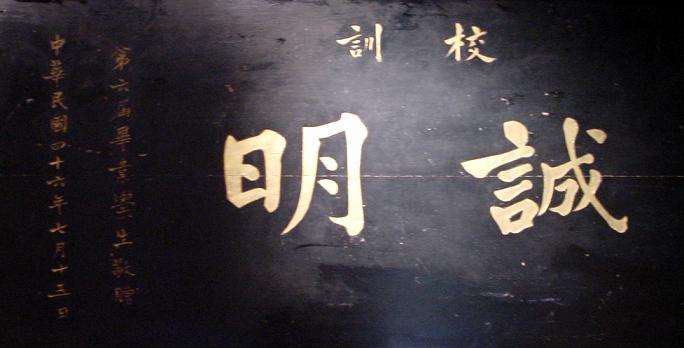 校訓
誠明
第六屆畢業學生敬贈
中華民國四十六年七月十五日